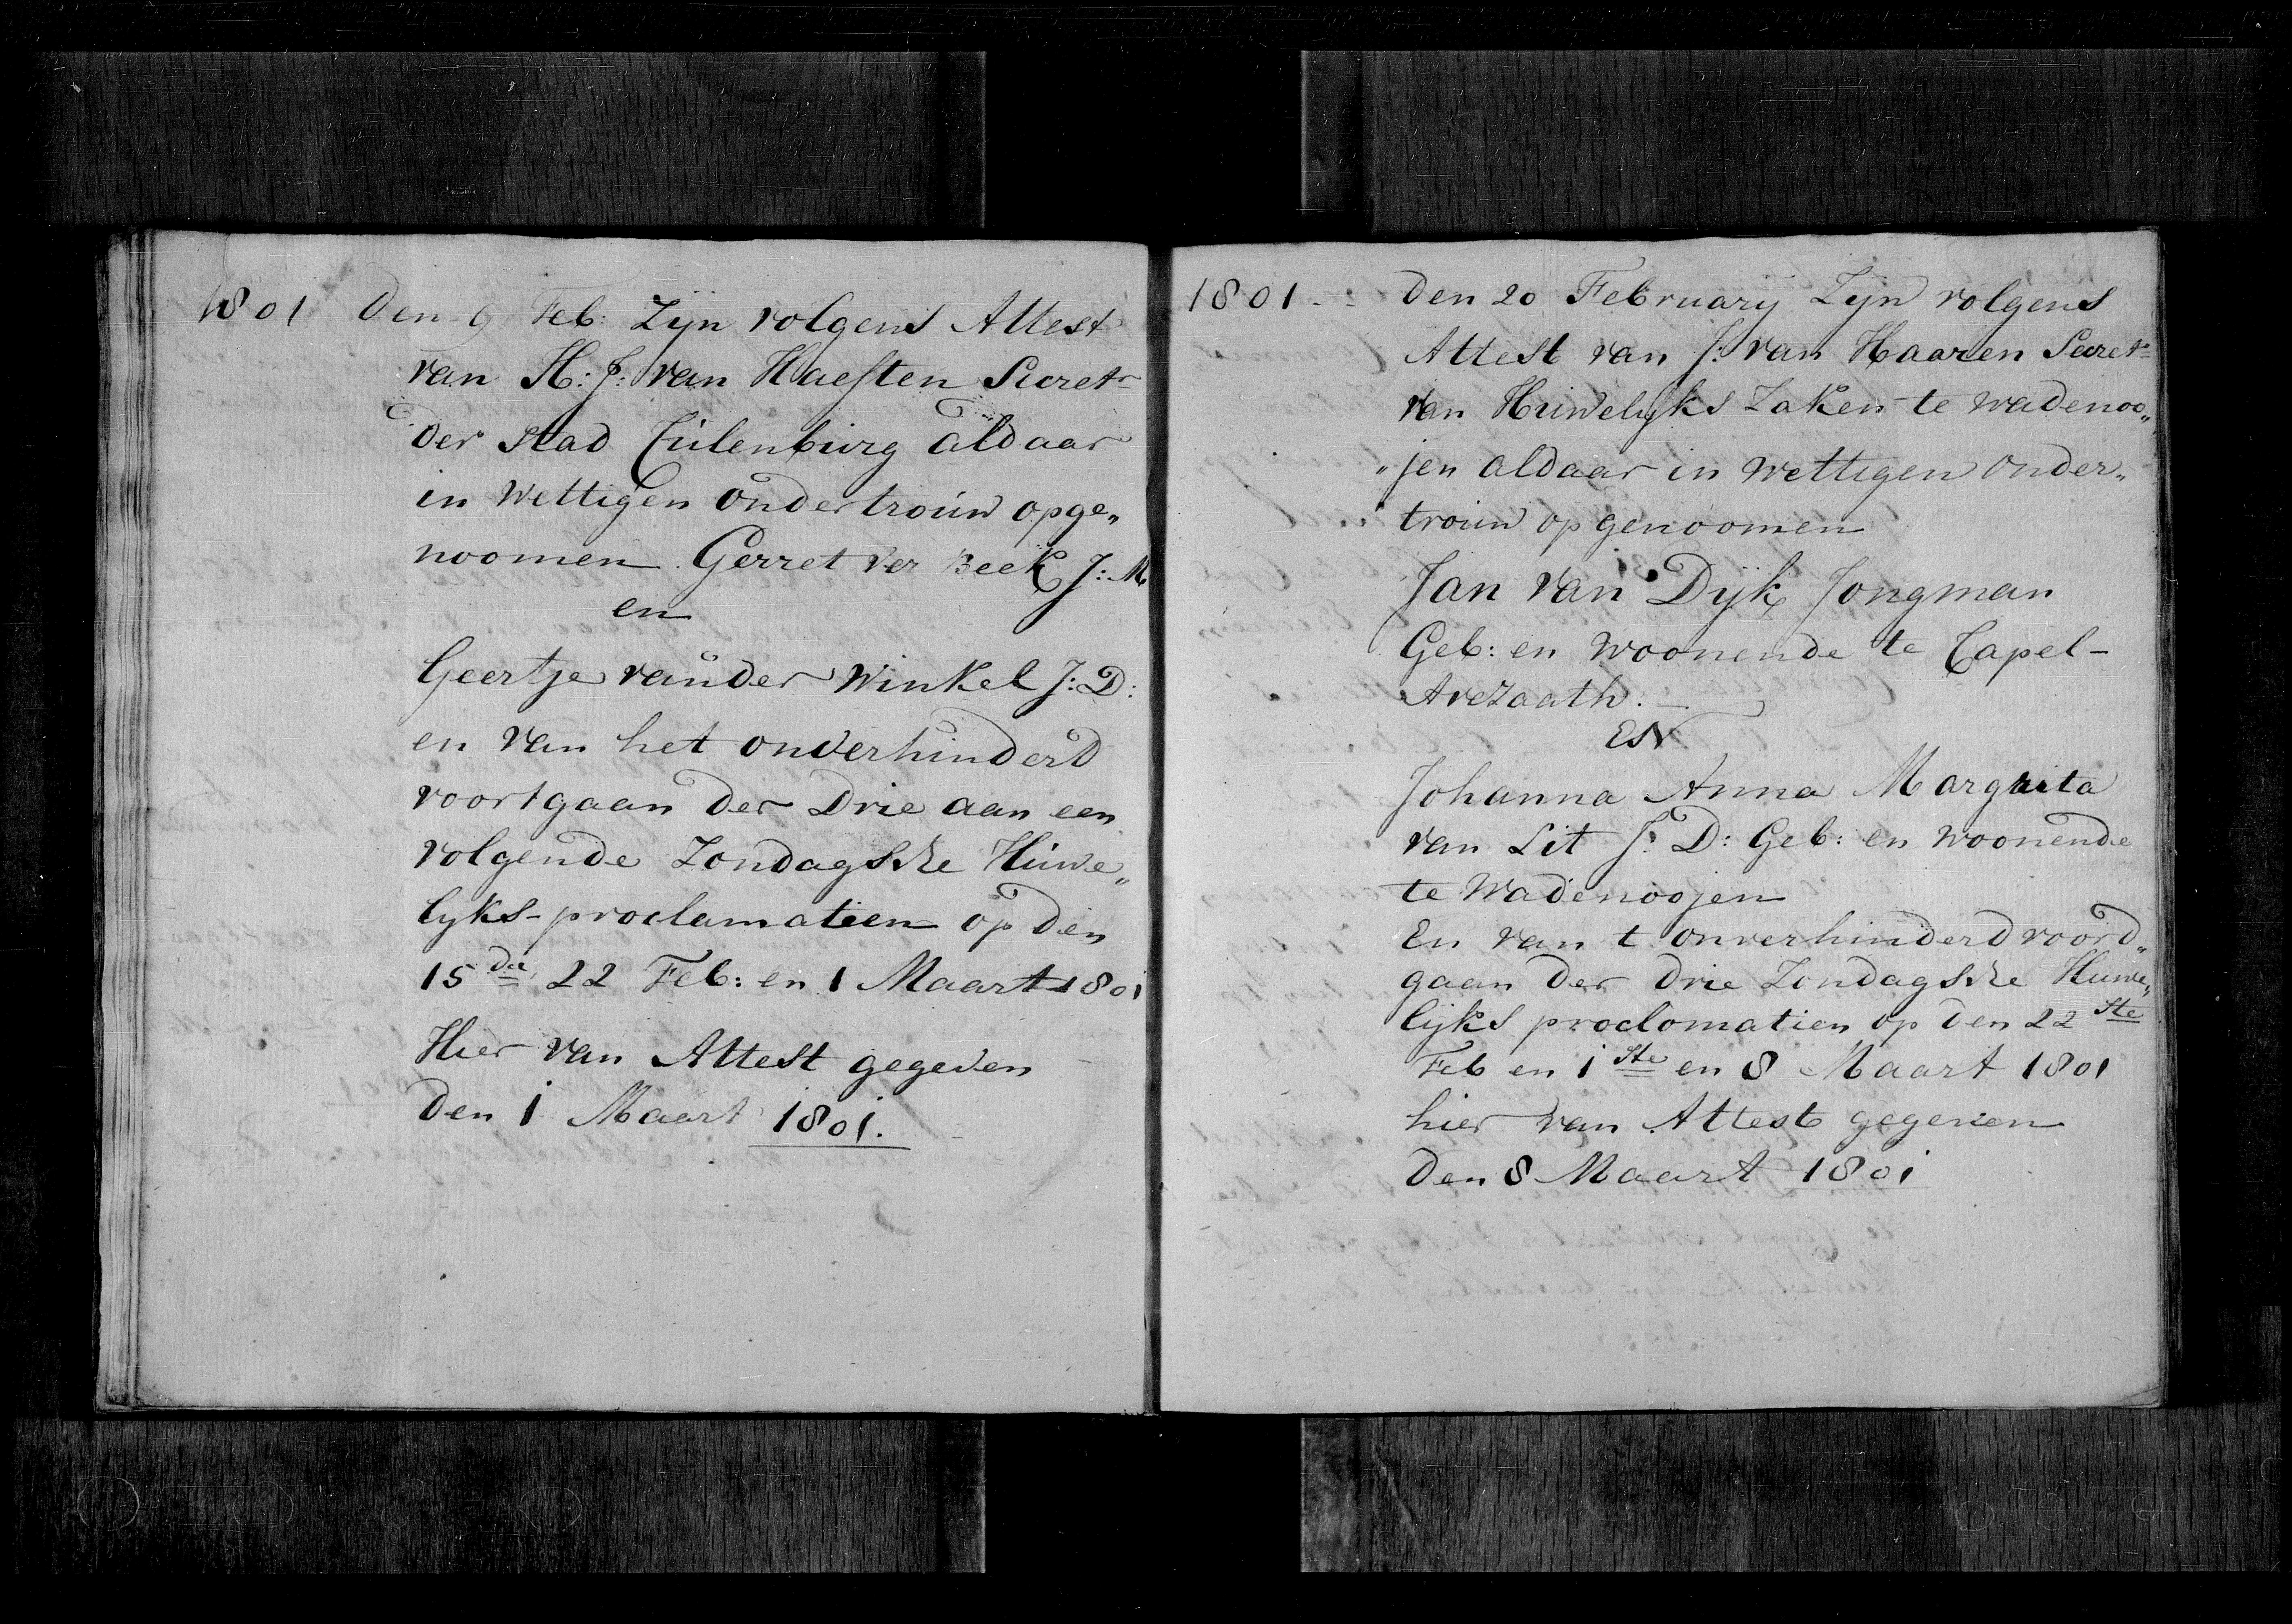 1801 Den 9 Feb: Zijn volgens Attest
van H: J: van Haeften Secretr
der Stad Cúlenbúrg aldaar
in Wettigen ondertroúw opge„
noomen Gerret ver Beek J: M
en
Geertje vander Winkel J: D:
en van het onverhinderd
voortgaan der Drie aan een
volgende Zondagske Húwe„
lyks-proclamatien op den
15de 22 Feb: en 1 Maart 1801
Hier van Attest gegeven
Den 1 Maart 1801.
1801 - Den 20 February Zyn volgens
Attest van J: van Haaren Secretr
van Húwelyks Zaken te wadenoo„
„jen aldaar in Wettigen Onder„
troúw opgenoomen
Jan van Dijk Jongman
Geb: en Woonende te Capel-
Avezaath. -
EN
Johanna Anna Margrita
van Lit J: D: Geb: en Woonende
te Wadenoojen
En van t onverhinderd voord„
gaan der drie Zondagske Huwe„
lijks proclomatien op den 22ste
Feb en 1ste en 8 Maart 1801
hier van Attest gegeven
Den 8 Maart 1801